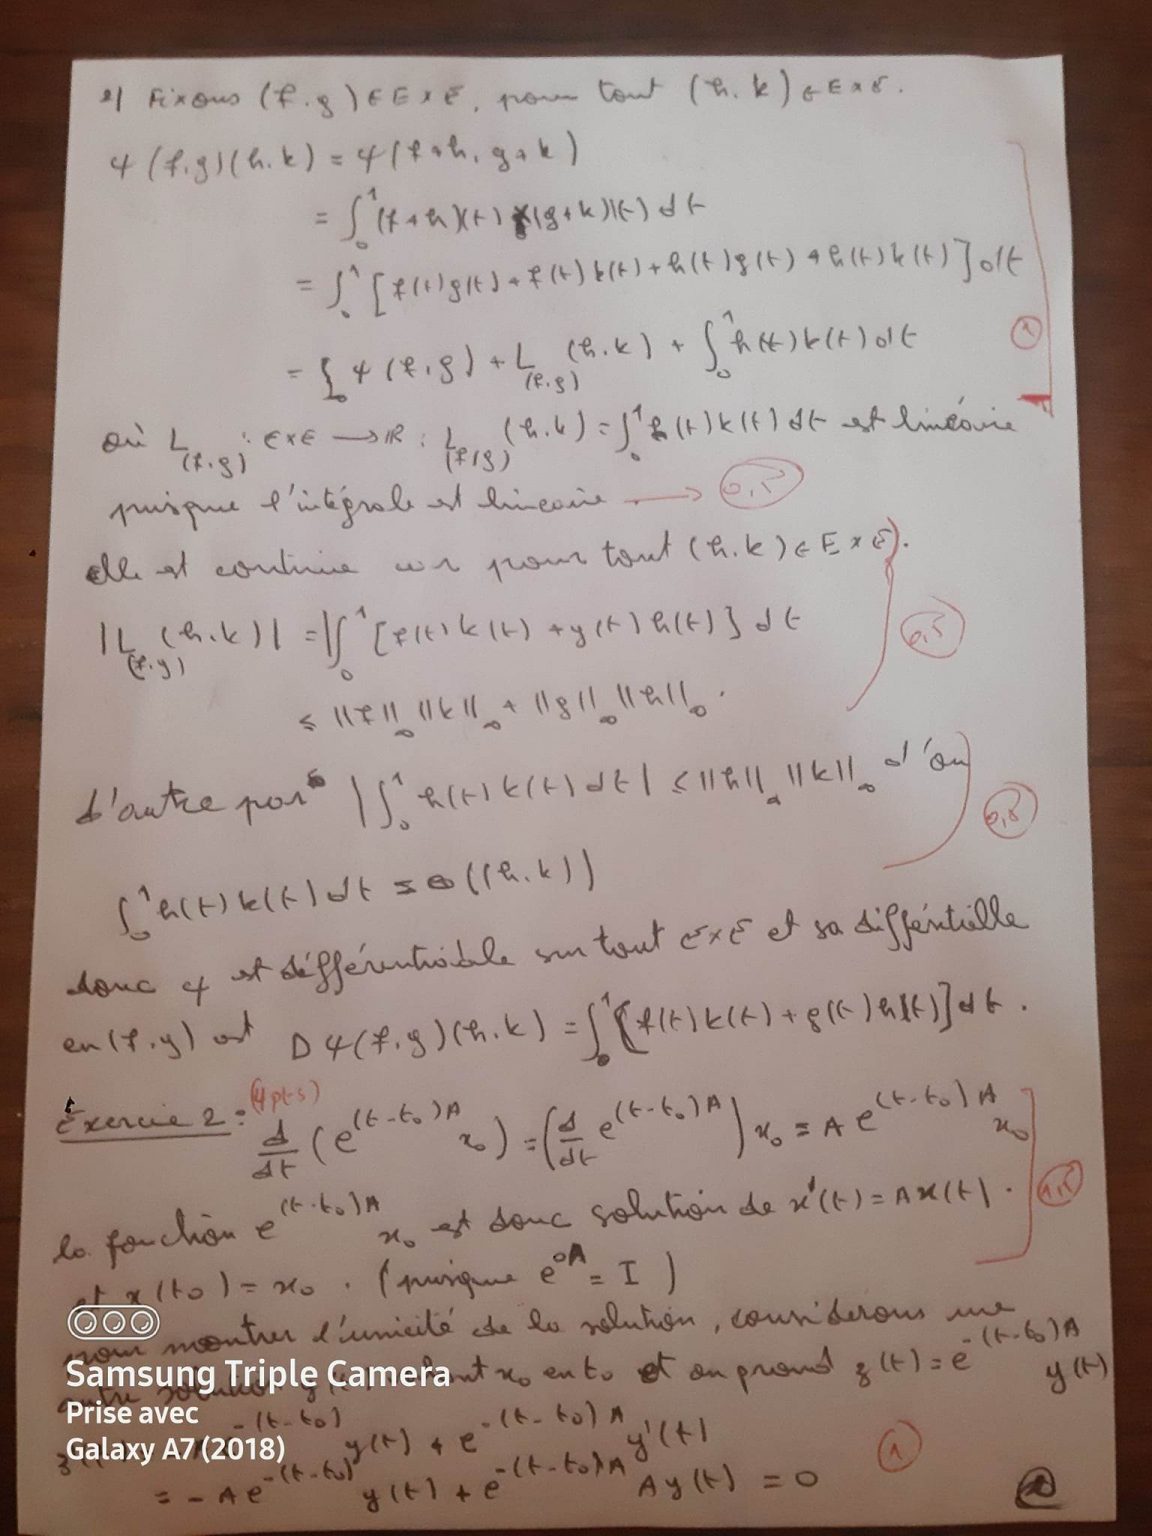 2) Fixons (f.g) ∈ E×E, pour tout (h.k) ∈ E×E.
ψ(f.g)(h.k) = ψ(f+h, g+k)
= ∫₀¹ (f+h)(t) × (g+k)(t) dt
= ∫₀¹ [f(t)g(t) + f(t)k(t) + h(t)g(t) + h(t)k(t)] dt
= ψ(f.g) + L_(f.g) (h.k) + ∫₀¹ h(t)k(t) dt
①
où L_(f.g) : E×E → ℝ : L_(f,g) (h.k) = ∫₀¹ h(t)k(t) dt est linéaire
puisque l'intégrale est linéaire → 0,5
elle est continue car pour tout (h.k) ∈ E×E.
|L_(f.g) (h.k)| = |∫₀¹ [f(t)k(t) + g(t)h(t)] dt
0,5
≤ ‖f‖_∞ ‖k‖_∞ + ‖g‖_∞ ‖h‖_∞.
d'autre part |∫₀¹ h(t)k(t) dt| ≤ ‖h‖_∞ ‖k‖_∞ d'où
0,5
∫₀¹ h(t)k(t) dt = o((h.k))
donc ψ est différentiable sur tout E×E et sa différentielle
en (f.g) est Dψ(f.g)(h.k) = ∫₀¹ [f(t)k(t) + g(t)h(t)] dt.
Exercice 2 : (4pts) d/dt (e^{(t-t₀)A} x₀) = (d/dt e^{(t-t₀)A}) x₀ = A e^{(t-t₀)A} x₀
la fonction e^{(t-t₀)A} x₀ est donc solution de x'(t) = Ax(t).
1,5
et x(t₀) = x₀. (puisque e^{0A} = I)
pour montrer l'unicité de la solution, considérons une
autre solution x₀ en t₀ et on prend z(t) = e^{-(t-t₀)A} y(t)
e^{-(t-t₀)} y(t) + e^{-(t-t₀)A} y'(t)
①
= -A e^{-(t-t₀)} y(t) + e^{-(t-t₀)A} A y(t) = 0
Samsung Triple Camera
Prise avec
Galaxy A7(2018)